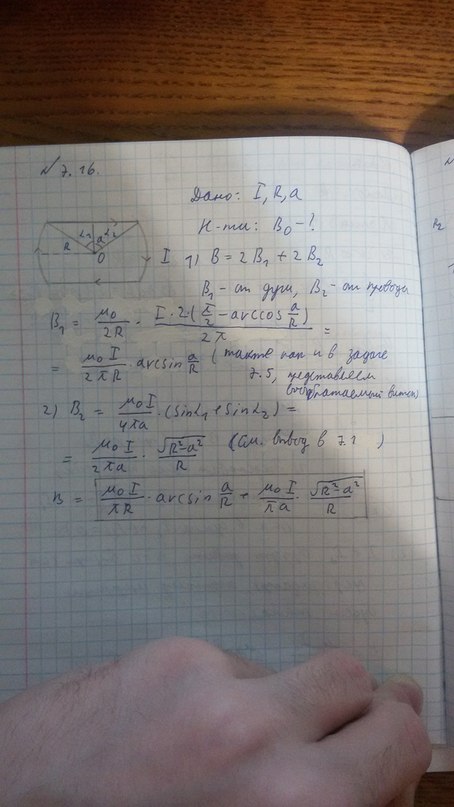 № 7.16.
Дано: I, R, a
Н-ти: B₀ - ?
α₁ a α₂
R O I
1) B = 2B₁ + 2B₂
B₁ - от дуги, B₂ - от провода
B₁ = μ₀/2R · I·2(π/2 - arccos a/R)/2π =
= μ₀I/2πR · arcsin a/R (также как и в задаче
7.5, представляем
виток)
2) B₂ = μ₀I/4πa · (sinα₁ + sinα₂) =
= μ₀I/2πa · √(R²-a²)/R (см. вывод в 7.1 )
B = μ₀I/πR · arcsin a/R + μ₀I/πa · √(R²-a²)/R